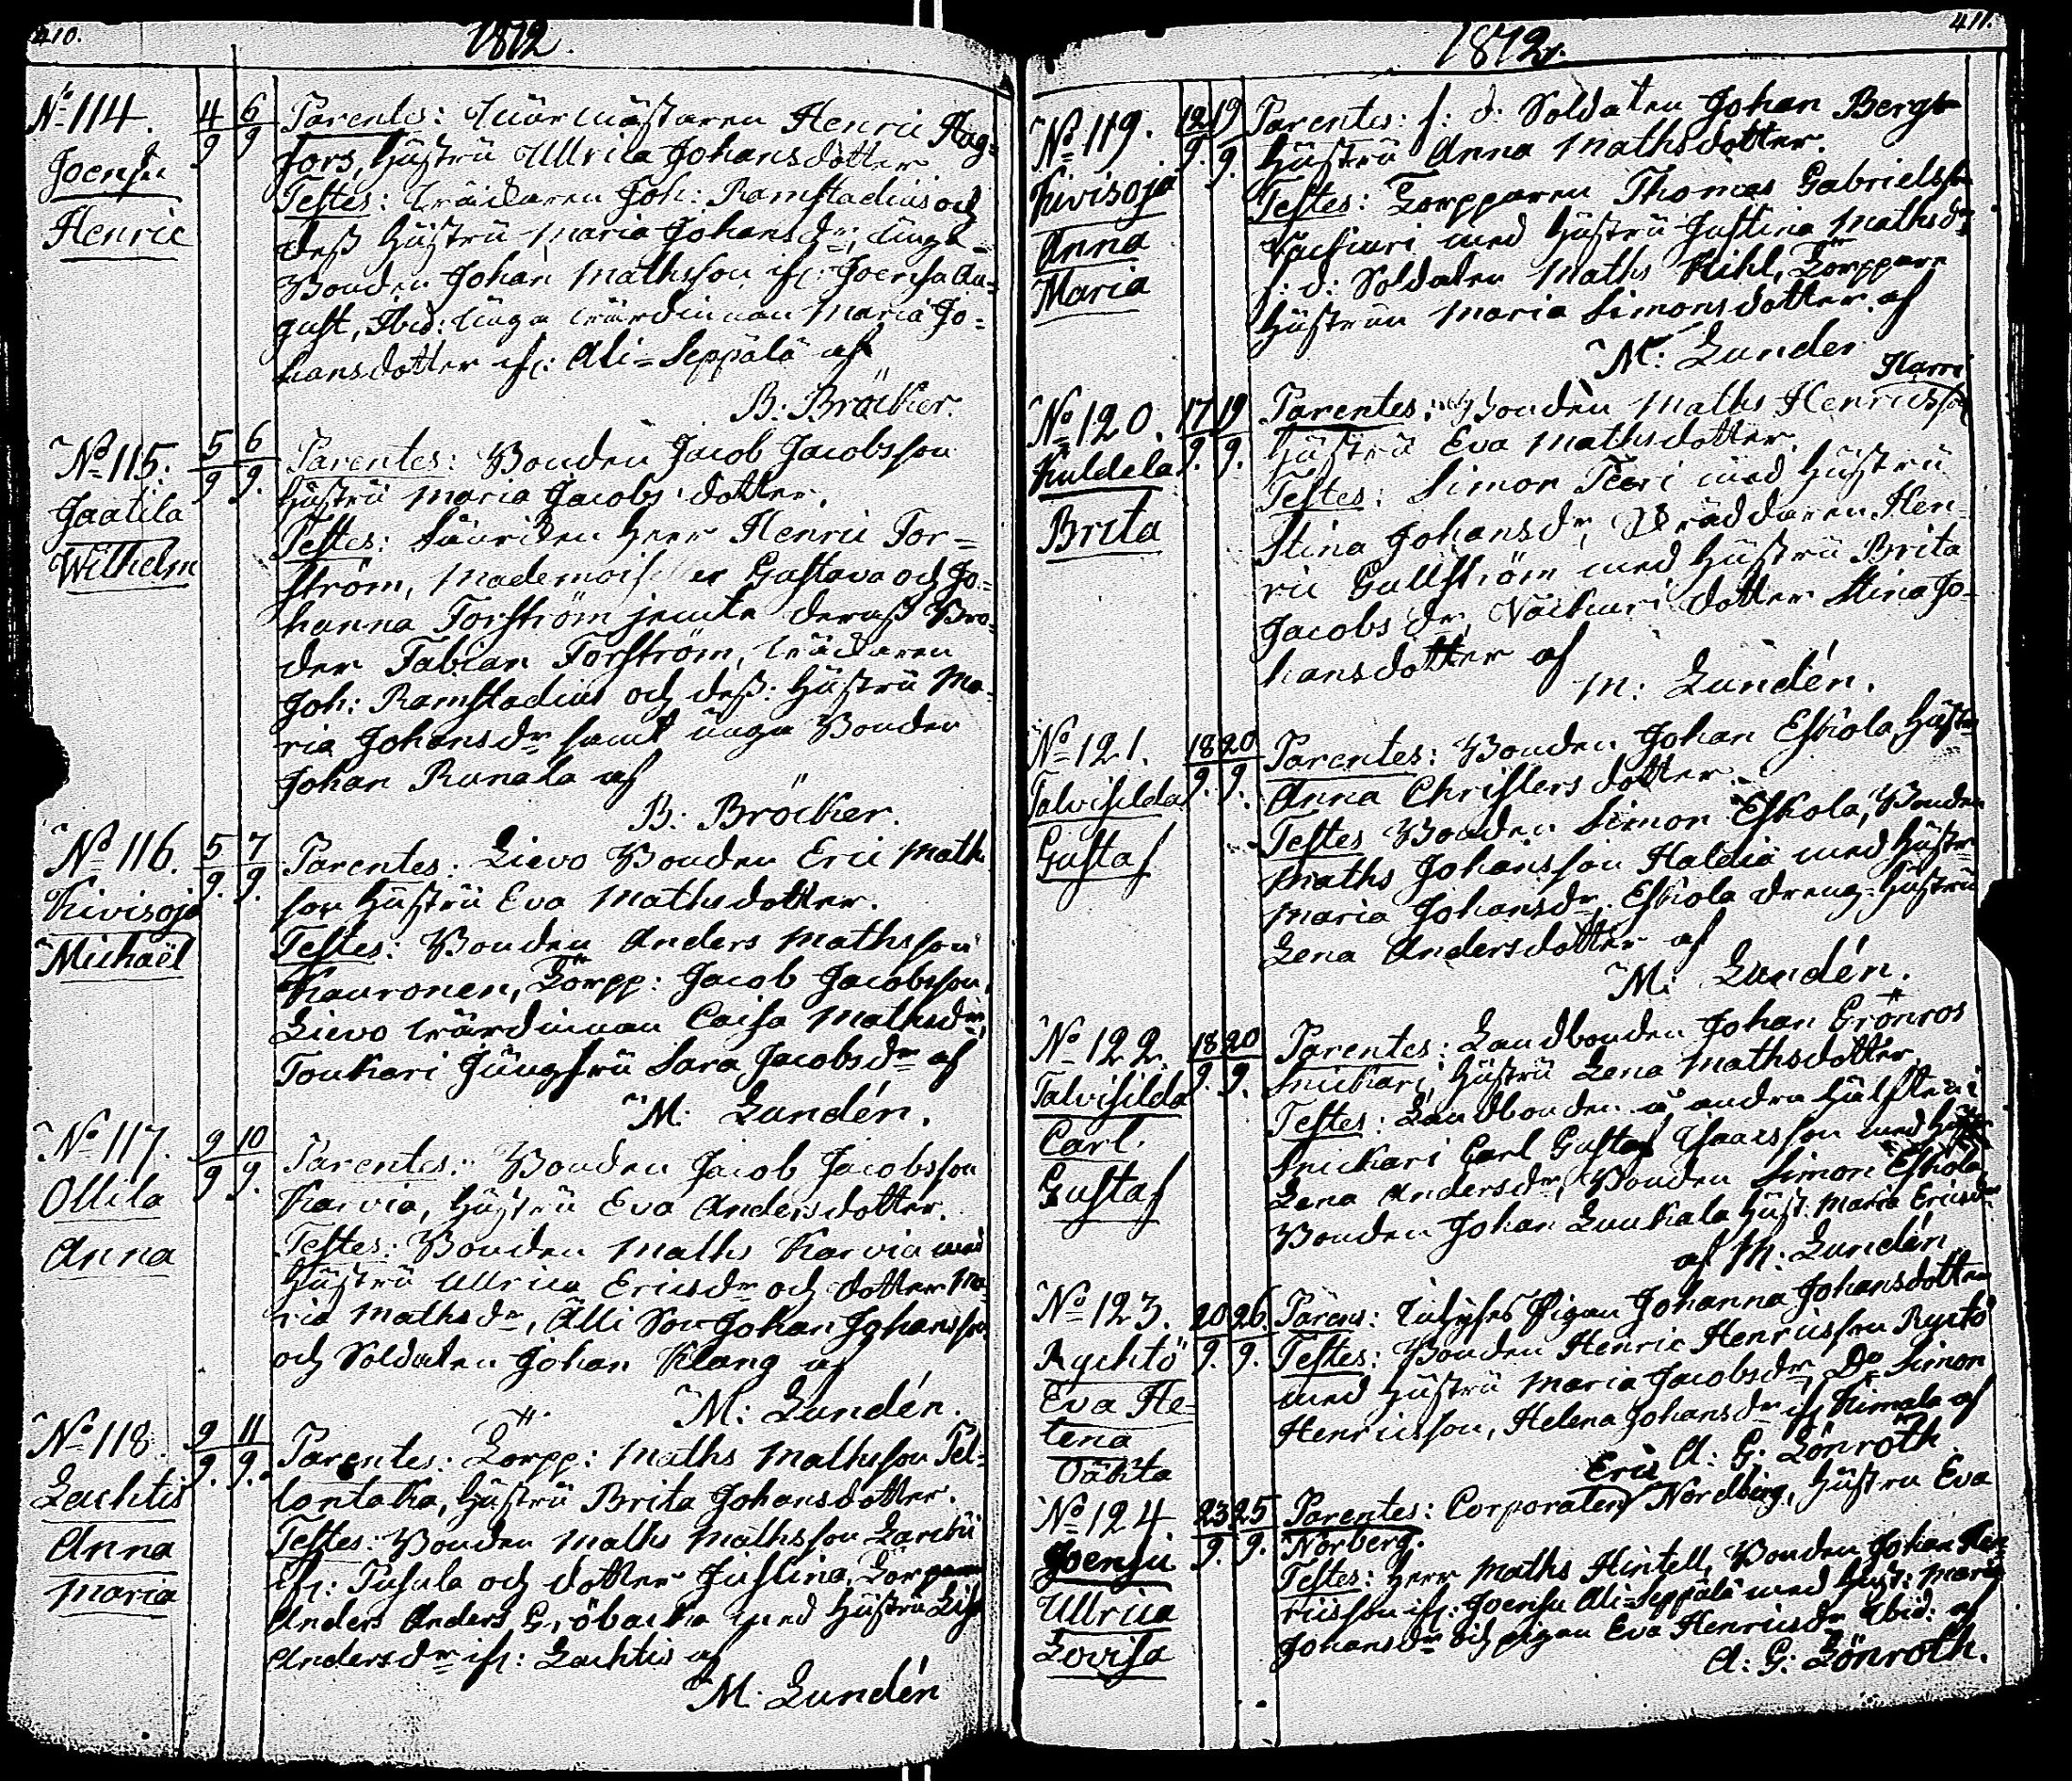 410.
1812.
No 114.
Joensu
Henric
4/9 6/9
Parentes: Henric Hag=
fors, Hustru Ullrica Johansdotter
Testes: Joh: Ramstadius och
dess Hustru Maria Johansdr, unga
Bonden Johan Mathsson ifr: Joensu Au=
gust, Ibid: unga wärdinnan Maria Jo=
hansdotter ifr: Ali=Seppälä af
B. Bröcker.
No 115.
Jaatila
Wilhelm
5/9 6/9.
Parentes: Bonden Jacob Jacobsson
Hustru Maria Jacobs dotter.
Testes: Herr Henric For=
ström, Mademoiseller Gustava och Jo=
hanna Forström jemte deras Bro=
der Fabian Forström,
Joh: Ramstadius och dess: Hustru Ma=
ria Johansdr samt unga Bonden
Johan Runala af
B: Bröcker.
No 116.
Kivisoja
Michaël
5/9. 7/9.
Parentes: Lievo Bonden Eric Maths
son Hustru Eva Mathsdotter.
Testes: Bonden Anders Mathsson
Kauronen, Torpp: Jacob Jacobsson,
Lievo wärdinnan Caisa Mathsdr,
Toukari Jungfru Sara Jacobsdr af
M: Lundén.
No 117.
Ollila
Anna
9/9 10/9.
Parentes: Bonden Jacob Jacobsson
Karvia, Hustru Eva Andersdotter.
Testes: Bonden Maths Karvia med
Hustru Ullrica Ericsdr och dotter Ma=
ria Mathsdr, Älli Son Johan Johansson
och Soldaten Johan Klang af
M: Lundén.
No 118
Lachtis
Anna
Maria
9/9. 11/9.
Parentes: Torpp: Maths Mathsson Pel=
lontaka, Hustru Brita Johansdotter.
Testes: Bonden Maths Mathsson
ifr: Pusula och dotter Justina,
Anders Anders G, öbacka med Hustru Lisa
Andersdr ifr: Lachtis af
M. Lundén
411.
1812.
No 119.
Kivisoja
Anna
Maria
12/9. 19/9.
Parentes: f: d: Soldaten Johan Berg
Hustru Anna Mathsdotter.
Testes: Torpparen Thomas Gabrielsson
Väckari med Hustru Justina Mathsdr,
f: d: Soldaten Maths Kihl, Torppare
Hustrun Maria Simonsdotter af
M: Lunden
Harri
No 120.
Kuldela
Brita
17/9. 19/9.
Parentes: Bonden Maths Henricsson
Hustru Eva Mathsdotter
Testes: Simon Teeri med Hustru
Stina Johansdr, Skräddaren Hen=
ric Gullström med Hustru Brita
Jacobs dr, Väckari dotter Stina Jo=
hansdotter af
M: Lundén.
No 121.
Talvisilda
Gustaf
18/9. 20/9.
Parentes: Bonden Johan Eskola, Hustru
Anna Christersdotter.
Testes Bonden Simon Eskola, Bonden
Maths Johansson Haldia med Hustru
Maria Johansdr, Eskola dreng=Hustru
Lena Andersdotter af
M: Lundén.
No 122.
Talvisilda
Carl
Gustaf
18/9. 20/9.
Parentes: Landbonden Johan Grönros
Snickari, Hustru Lena Mathsdotter
Testes: Landbonden å andra hälften i
Snickari Carl Gustaf Isaacsson med Hustru
Lena Andersdr, Bonden Simon Eskola
Bonden Johan Luukala Hust: Maria Ericsdr
af M: Lundén
No 123.
Rychtö
Eva He=
lena
Oäkta
20/9. 26/9.
Parens: Pigan Johanna Johansdotter
Testes: Bonden Henric Henricsson Rycto
med Hustru Maria Jacobsdr, Do Simon
Henricsson, Helena Johansdr if Kimala af
A: G: Lönroth
No 124.
Joensu
Ullrica
Lovisa
23/9. 25/9.
Parentes: Corporalen Eric Nordberg, Hustru Eva
Norberg.
Testes: Herr Maths Hintell, Bonden Johan Hen=
ricsson ifr: Joensu Ali=Seppälä med Hust: Maria
Johansdr och pigan Eva Henricsdr Ibid: af
A: G: Lönroth.